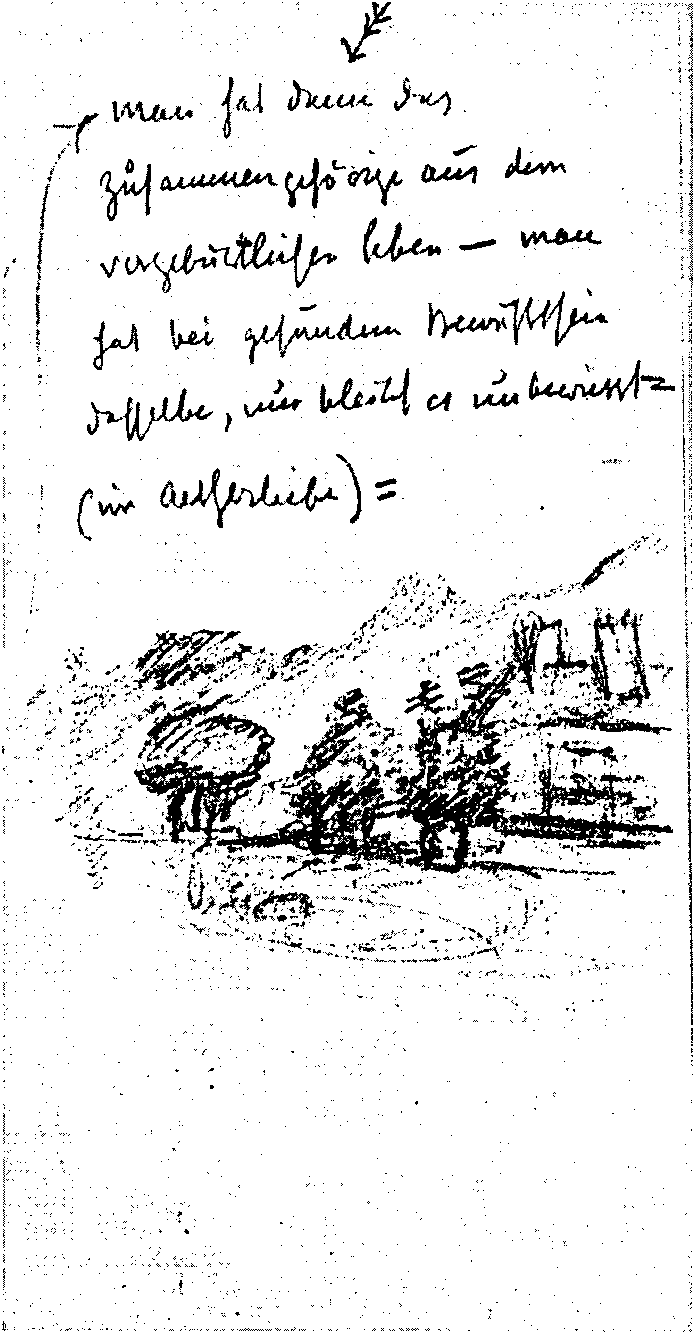 man hat dann das
Zusammengehörige aus dem
vorgeburtlichen Leben — man
hat bei gesundem Bewußtsein
dasselbe, nur bleibt es unbewusst =
(im Aetherleibe) =